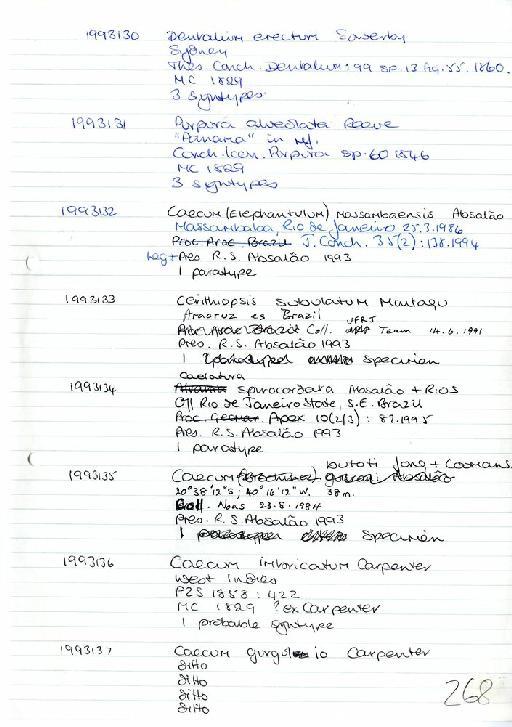 1993130 Dentalium erectum Sowerby
Sydney
Thes. Conch. Dentalium: 99 sp. 13 fig. 55. 1860.
MC 1829
3 syntypes
1993131 Purpura alveolata Reeve
"Panama" in ref.
Conch. Icon. Purpura sp. 60 1846
MC 1829
3 syntypes
1993132 Caecum (Elephantulum) massambabensis Absalão
Massambaba, Rio de Janeiro 25.3.1986
J. Conch. 35(2): 138.1994
leg + Pres R.S. Absalão 1993
1 paratype
1993133 Cerithiopsis subulatum Montagu
Aracruz es Brazil
Coll. UFRJ Team 14.6.1991
Pres. R.S. Absalão 1993
1 specimen
1993134 Caelatura spirocordata Absalão + Rios
Off Rio de Janeiro State, S.E. Brazil
Apex 10(2/3): 87.1995
Pres. R.S. Absalão 1993
1 paratype
1993135 Caecum butoti Jong + Coomans
20°38'12"S; 40°16'12"W. 38m.
23.8.1984
Pres. R.S Absalão 1993
1 specimen
1993136 Caecum imbricatum Carpenter
West Indies
PZS 1858: 422
MC 1829 ?ex Carpenter
1 probable syntype
1993137 Caecum Carpenter
ditto
ditto
ditto
ditto
268